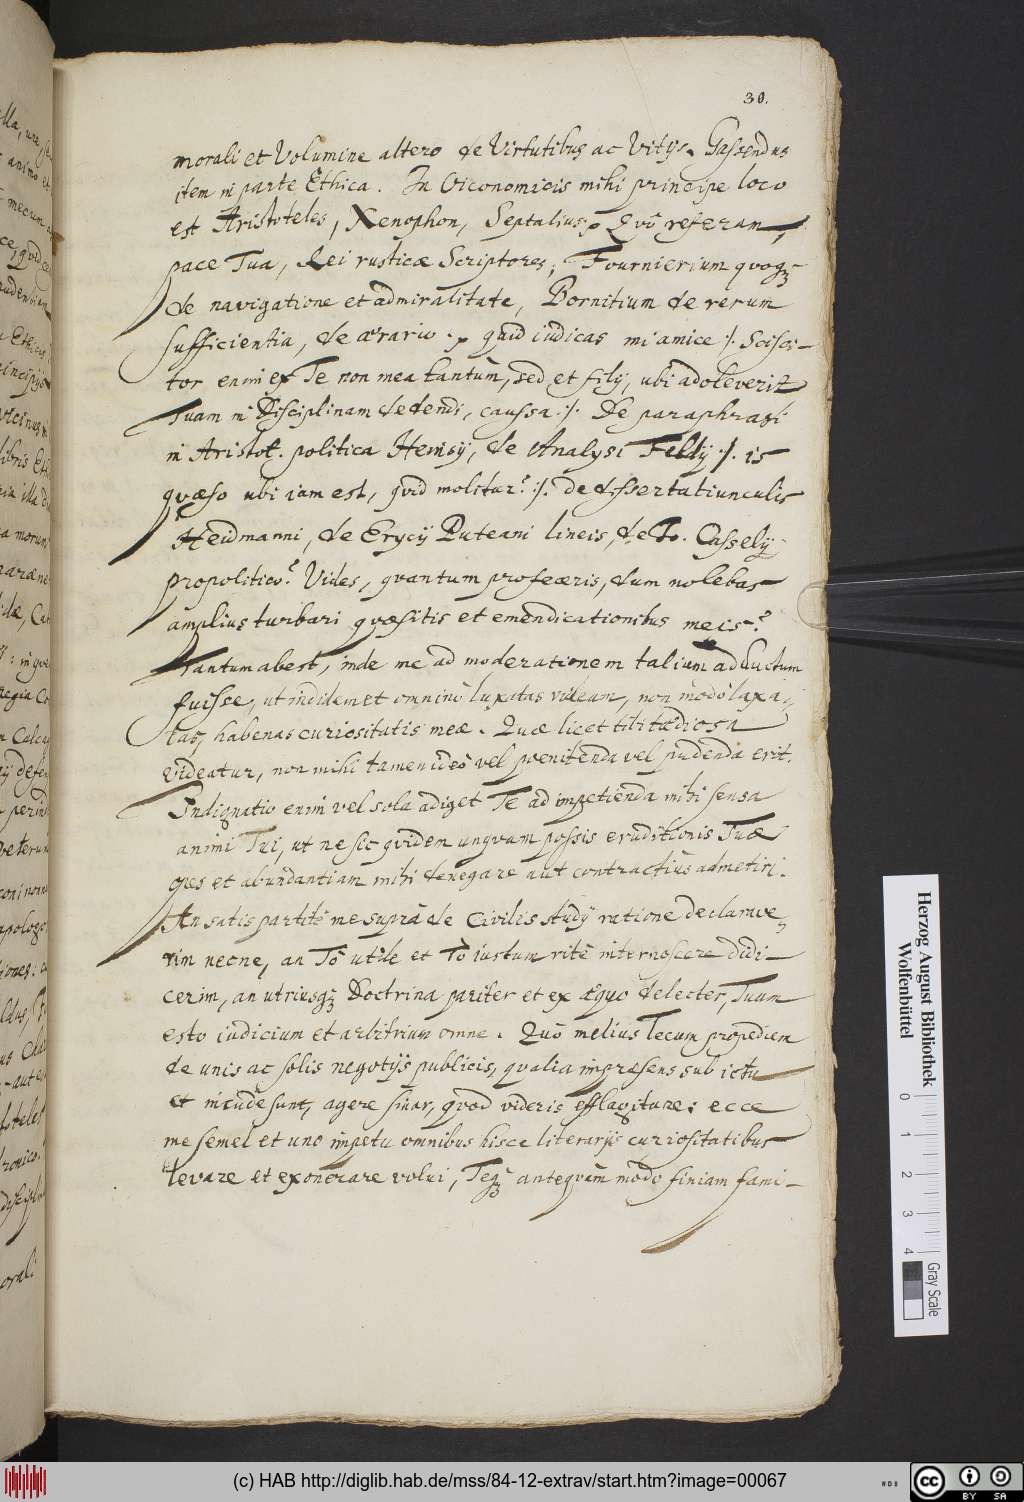 30.
morali et Volumine altero de Virtutibus ac Vitijs. Gassendus
item in parte Ethica. In Oiconomicis mihi principe loco
est Aristoteles, Xenophon, Septalius: Quò referam,
pace Tua, Rei rusticæ Scriptores; Fournierium quoqꝫ
de navigatione et admiralitate, Bornitium de rerum
sufficientia, de ærario: quid iudicas mi amice /. Scisci-
tor enim ex Te non mea tantùm, sed et filij, ubi adoleverit
Tuam in Disciplinam dedendi, caussa:/. De paraphrasi
in Aristot. politica Heinsij, de Analysi Feldij:/. is
quæso ubi iam est, quid molitur?:/. de dissertatiunculis
Heidmanni, de Erycij Puteani lineis, de Jo. Casselij
propolitico? Vides, quantum profeceris, dum nolebas
amplius turbari quæsitis et emendicationibus meis?
Tantum abest, inde me ad moderationem talium adductum
fuisse, ut indidem et omninò luxatas videam, non modò laxa-
tas, habenas curiositatis meæ. Quæ licet tibi tædiosa
videatur, non mihi tamen ideò vel pœnitenda vel pudenda erit.
Indignatio enim vel sola adiget Te ad impetienda mihi sensa
animi Tui, ut ne sic quidem unquam possis eruditionis Tuæ
opes et abundantiam mihi denegare aut contractiùs admetiri.
An satis partitè me suprà de Civilis studij ratione declarave-
rim necne, an Tò utile et Tò iustum ritè internoscere didi-
cerim, an utriusqꝫ Doctrina pariter et ex æquo delecter, Tuum
esto iudicium et arbitrium omne. Quò melius Tecum propediem
de unis ac solis negotijs publicis, qualia impræsens sub ictu
et incude sunt, agere sinar, quod videris efflagitare: ecce
me semel et uno impetu omnibus hisce literarijs curiositatibus
levare et exonerare volui, Teqꝫ antequàm modò finiam fami-
Herzog August Bibliothek
Wolfenbüttel
0 1 2 3 4
Gray Scale
(c) HAB http://diglib.hab.de/mss/84-12-extrav/start.htm?image=00067
cc BY SA